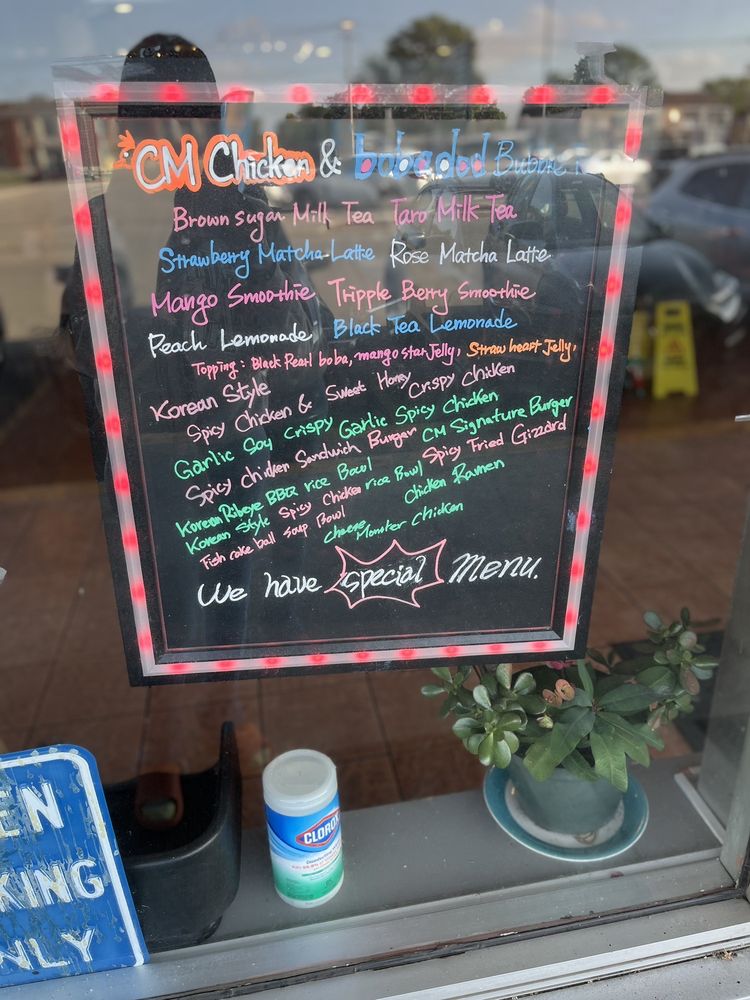 CM Chicken & boba ded Bubble
Brown sugar Milk Tea Taro Milk Tea
Strawberry Matcha-Latte Rose Matcha Latte
Mango Smoothie Tripple Berry Smoothie
Peach Lemonade Black Tea Lemonade
Topping: Black Pearl boba, mango star Jelly, Straw heart Jelly,
Korean Style
Spicy Chicken & Sweet Honey Crispy Chicken
Garlic Soy Crispy Garlic Spicy Chicken
Spicy chicken Sandwich Burger CM Signature Burger
Korean Ribeye BBQ rice Bowl Spicy Fried Gizzard
Korean Style Spicy Chicken rice Bowl Chicken Ramen
Fish cake ball soup Bowl cheese Monster Chicken
We have special Menu.
EN
KING
NLY
CLOROX